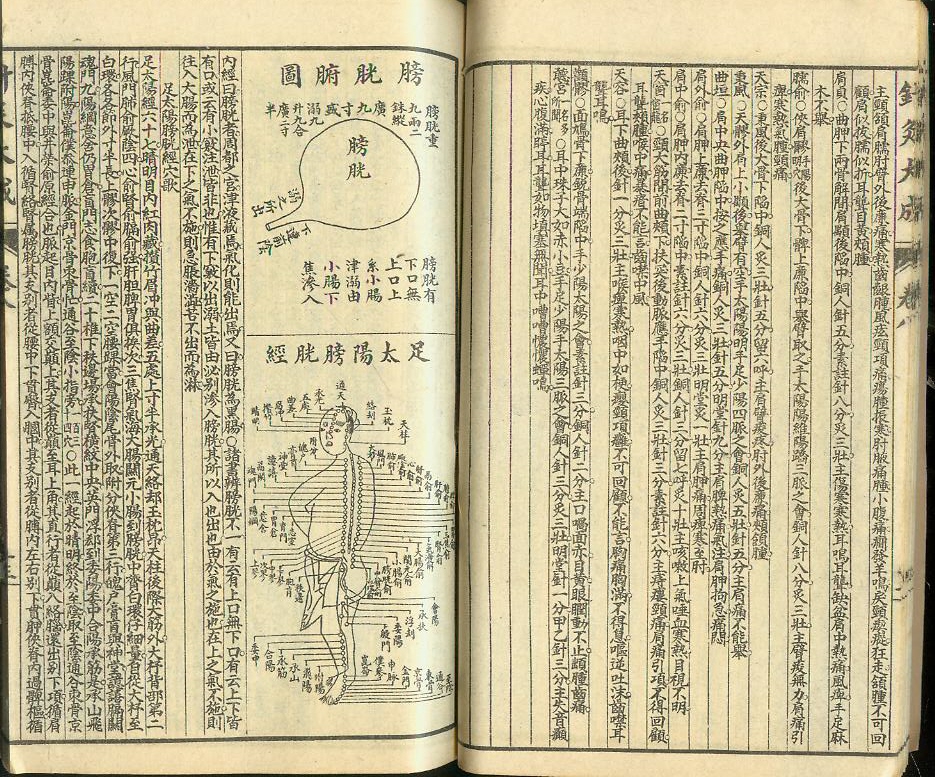 針灸大成 卷六
主頸頷肩臑肘臂外後廉痛寒熱齒齦腫風痃頸項痛瘍腫振寒肘腋痛腫小腹痛癇發羊鳴戾頸瘈瘲狂走頷腫不可回
顧肩似拔臑似折耳聾目黃頰腫
肩貞○曲胛下兩骨解間肩髃後陷中銅人針五分素註針八分灸三壯主傷寒寒熱耳鳴耳聾缺盆肩中熱痛風痺手足麻
木不舉
臑俞○俠肩髎後大骨下胛上廉陷中舉臂取之手太陽陽維陽蹻三脈之會銅人針八分灸三壯主臂痠無力肩痛引
胛寒熱氣腫頸痛
天宗○秉風後大骨下陷中銅人灸三壯針五分留六呼主肩臂痠疼肘外後廉痛頰頷腫
秉風○天髎外肩上小髃後舉臂有空手太陽陽明手足少陽四脈之會銅人灸五壯針五分主肩痛不能舉
曲垣○肩中央曲胛陷中按之應手痛銅人灸三壯針五分明堂針九分主肩痺熱痛氣注肩胛拘急痛悶
肩外俞○肩胛上廉去脊三寸陷中銅人針六分灸三壯明堂灸一壯主肩胛痛周痺寒至肘
肩中俞○肩胛內廉去脊二寸陷中素註針六分灸三壯銅人針三分留七呼灸十壯主咳嗽上氣唾血寒熱目視不明
天窗一名窗籠○頸大筋間前曲頰下扶突後動脈應手陷中銅人灸三壯針三分素註針六分主痔瘻頸痛肩痛引項不得回顧
耳聾頰腫喉中痛暴瘖不能言齒噤中風
天容○耳下曲頰後針一分灸三壯主喉痺寒熱咽中如梗癭頸項癰不可回顧不能言胸痛胸滿不得息嘔逆吐沫齒噤耳
聾耳鳴
顴髎○面鳩骨下廉銳骨端陷中手少陽太陽之會素註針三分銅人針二分主口喎面赤目黃眼瞤動不止䪼腫齒痛
聽宮一名多所聞○耳中珠子大如赤小豆手足少陽手太陽三脈之會銅人針三分灸三壯明堂針一分甲乙針三分主失音癲
疾心腹滿聤耳耳聾如物填塞無聞耳中嘈嘈憹憹蟬鳴
膀胱腑圖
膀胱重
九兩二
銖縱
廣九
寸或
溺九
升九合
廣二寸
半
膀胱
溺之所出
下連前陰
膀胱有
下口無
上口上
系小腸
津溺由
小腸下
焦滲入
足太陽膀胱經
通天
絡却
玉枕
天柱
承光
五處
曲差
眉冲
攢竹
睛明
附分
魄戶
神堂
譩譆
膈關
魂門
陽綱
意舍
胃倉
肓門
志室
胞肓
秩邊
肺俞
心俞
膈俞
肝俞
大腸俞
關元俞
小腸俞
會陽
承扶
浮郄
委陽
殷門
委中
合陽
承筋
承山
飛陽
附陽
崑崙
僕參
申脈
金門
京骨
束骨
通谷
至陰
內經曰膀胱者州都之官津液藏焉氣化則能出焉又曰膀胱為黑腸○諸書辨膀胱不一有云有上口無下口有云上下皆
有口或云有小竅注泄皆非也惟有下竅以出溺上皆由泌別滲入膀胱其所以入也出也由於氣之施也在上之氣不施則
注入大腸而為泄在下之氣不施則急脹濇澁苦不出而為淋
足太陽膀胱經穴歌
足太陽經六十七睛明目內紅肉藏攢竹眉冲與曲差五處上寸半承光通天絡却玉枕昂天柱後際大筋外大杼背部第二
行風門肺俞厥陰四心俞督俞膈俞強肝胆脾胃俱挨次三焦腎氣海大腸關元小腸到膀胱中膂白環仔細量自從大杼至
白環各各節外寸半長上髎次髎中復下一空二空腰踝當會陽陰尾骨外取附分俠脊第三行魄戶膏肓與神堂譩譆膈關
魂門九陽綱意舍仍胃倉肓門志室胞肓續二十椎下秩邊場承扶臀橫紋中央殷門浮郄到委陽委中合陽承筋是承山飛
陽踝附陽崑崙僕參連申脈金門京骨束骨忙通谷至陰小指旁一百三十四穴○此一經起於睛明終於至陰取至陰通谷束骨京
骨崑崙委中與井滎俞原經合也脈起目內眥上額交巔上其支者從巔至耳上角其直行者從巔入絡腦還出別下項循肩
膊內俠脊抵腰中入循膂絡腎屬膀胱其支別者從腰中下貫臀入膕中其支別者從膊內左右別下貫胛俠脊內過髀樞循